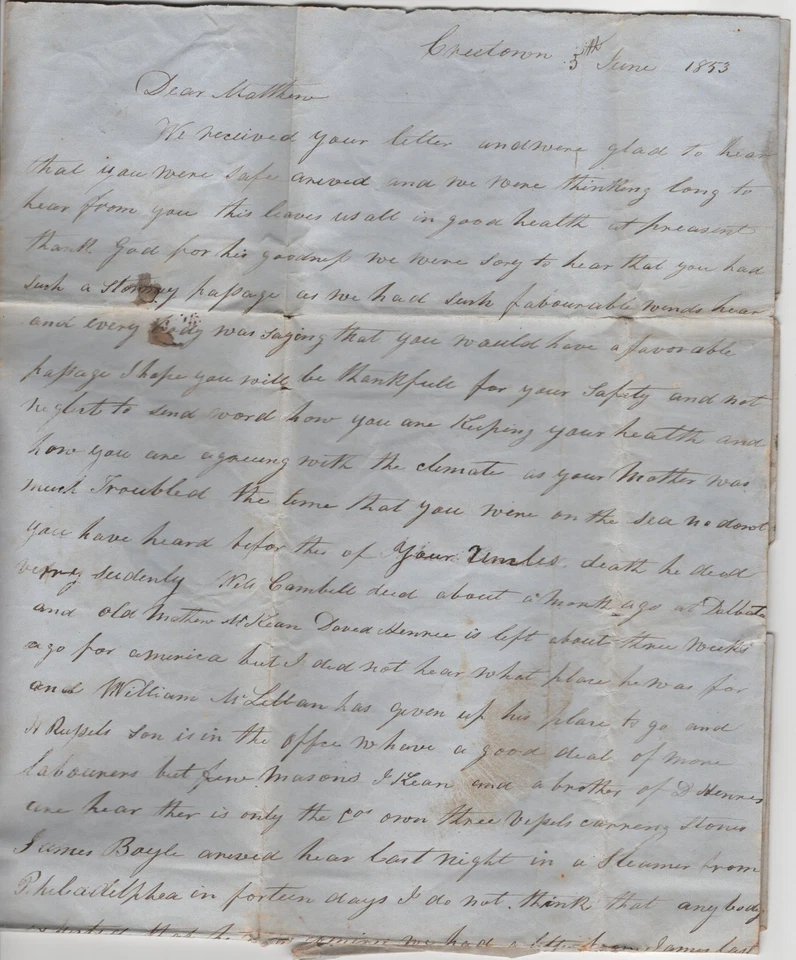 Creetown 5th June 1853
Dear Matthew
We received your letter and were glad to hear
that you were safe areved and we were thinking long to
hear from you this leaves us all in good health at preasent
thank God for his goodness we were sory to hear that you had
such a stormey passage as we had such favourable winds hear
and every body was saying that you would have a favorable
passage I hope you will be thankfull for your safety and not
neglect to send word how you are keeping your health and
how you are agreeing with the climate as your Mother was
much Troubled the time that you were on the sea no dout
you have heard befor this of Your Uncles death he deed
verry sudenly Cambell deed about a month ago at Dalbate
and old Mathew McKean David Henree is left about three weeks
ago for america but I did not hear what place he was for
and William McLellan has given up his place to go and
H Russels son is in the offce w have a good deal of more
labourers but few masons J Kean and a brother of D Henres
are hear ther is only the cos own three vessels carreng stones
James Boyle areved hear last night in a Steamer from
Philadelphea in forteen days I do not think that any body
that he was we had a letter from James last